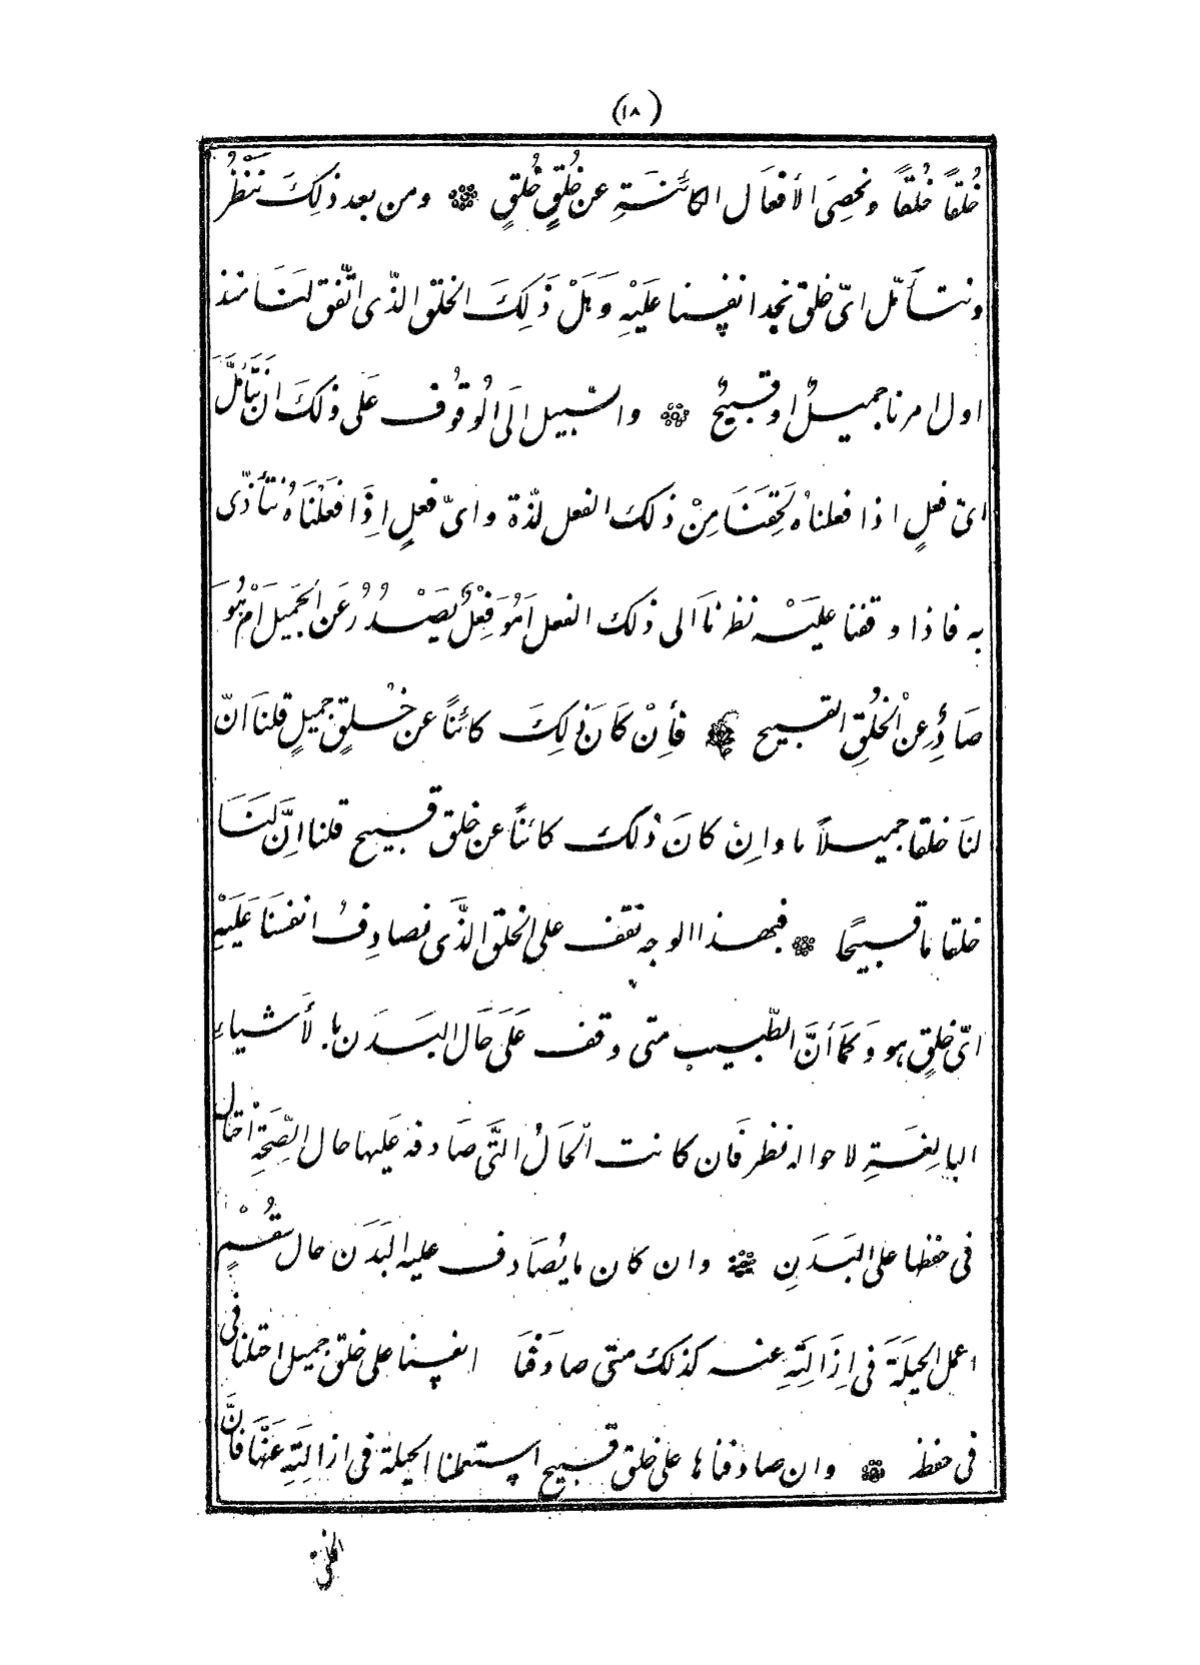 (١٨)
خُلقاً خُلقاً ونحصِىَ الأفعَال الكائنَةِ عن خُلقٍ خُلقٍ ومن بعد ذلِكَ نَنْظُرُ
ونتأمّل اىّ خلق نجد انفسنا عَلَيْهِ وَهَلْ ذَلِكَ الخلق الذّى اتّفق لنَا منذ
اول امرنا جميلٌ او قبيحٌ والسّبيل الَى الْوُقُوف عَلى ذلكَ ان نَتَأمَّلَ
اىّ فعلٍ اذا فعلناهُ لَحِقَنَا مِنْ ذلكَ الفعل لذّة واىّ فعلٍ اِذَا فَعَلْنَاهُ نتأذّى
به فاذا وقفنا عليَْه نظرنَا الى ذلك الفعل اَهُوَ فِعْلٌ يَصْدُرُ عَن الجَميل اَمْ هُوَ
صَادِرٌ عِنْ الخُلُقِ القبيح فأِنْ كَانَ ذلِكَ كائناً عن خُلقٍ جميلٍ قلنَا انّ
لنَا خلقا جميلاً ما وانْ كانَ ذلك كائناً عن خلق قبيح قلنا اِنَّ لَنَا
خلقا ما قبيحًا فبهذا الوجه نقف على الخلق الذَّى نصادِفُ انفسنَا عَلَيْهِ
اىّ خلقٍ هو وَكمَا أنَّ الطّبيب متى وقف عَلَى حَال البَدَن بالأَشياءِ
البالِغَةِ لاحواله نظر فَان كانت الحَالُ الَّتَى صَادفه عَليها حال الصِّحَّةِ احْتَال
فى حفْظها على البَدَنِ وان كان ما يُصَادف عليه البَدَن حال سُقْمٍ
اعمل الحيلَةَ فى اِزَالَتِهِ عنه كذلك متى صادَفنَا انفسنا على خلقٍ جميل احتلنا فى
فى حفظ وان صادفناها على خلق قبيح استعملنا الحيلة فى ازالَتِهِ عَنَّهَا فانَّ
الخلق